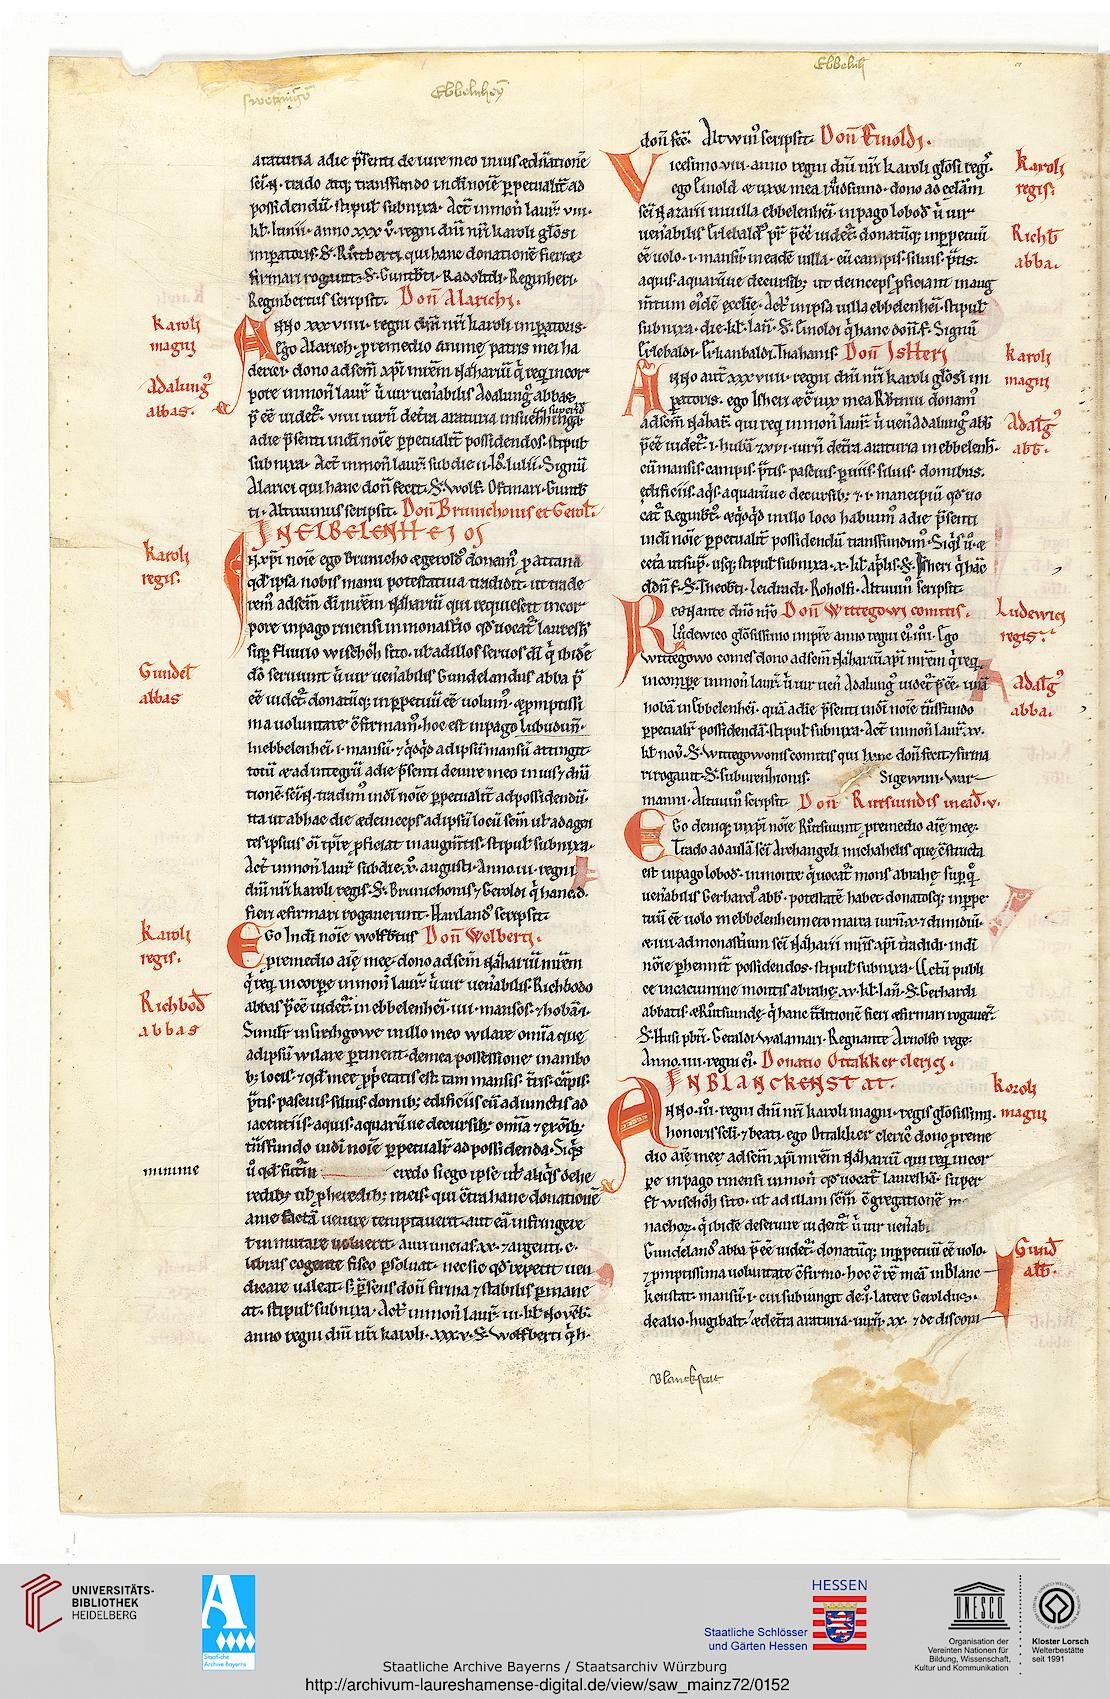 Ebbelnheỹ
araturia adie p̃senti de iure meo in ius ⁊ d̃natione
sc̃i .N. trado atq; transfundo in dī noīe p̱petualit̃ ad
possidendū. stipul̃ subnixa. Act̃ in mon̄ laur̃. viii.
kl̃. Iunii. anno xxxv. regni dn̄i nr̄i karoli glōsi
firmari rogauit. S. Guntb̃ti. Radolf̃di. Reginheri.
Reginbertus scripsit. Don̄ Alarichi.
Anno xxxviiii. regni dn̄i nr̄i karoli imp̱atoris.
Ego Alarich. p̱ remedio animę patris mei ha
derici. dono ad sc̄m xp̄i mr̄em Nazhariū q̃ req̃ incor
pore in mon̄ laur̃ ũ uir uenabilis Adalung' abbas
adie p̃senti in dī noīe p̱petualit̃ possidendos. stipul̃
subnixa. Act̃ in mon̄ laur̃ sub die ii. Id̃. Iulii. Signū
Alarici qui hanc don̄ fecit. S. Wolf. Ostmari. Guntb̃
ti. Altuuinus scripsit. Don̄ Brunichonis et Gerol̃.
IN ELBELENHEJOS
N xp̄i noīe ego Brunicho ⁊ gerold' donam' p̱ cartam
qd̃ ipsa nobis manu potestatiua tradidit. ut trade
rem' ad sc̄m dī mr̄em Nazhariū qui requiescit incor
pore in pago rinensi in monastirio qd̃ uocat̃ lauresh̃
sup̱ fluuio wischoh̃ sito. ub̃ ad illos seruos dī q̃ ibidē
dō seruiunt ũ uir uenabilis Gundelandus abba p̃
ēē uidet̃. donatūq; inp̱petuū ēē uolum' ⁊ p̱mptissi
ma uoluntate c̄firmam'. hoc est in pago lubudun̄.
In ebbelenhei .i. mansū. ⁊ q̃dq̃d ad ipsū mansū attingit.
totū ⁊ ad integrū adie p̃senti de iure meo in ius ⁊ dn̄a
tionē sc̃i .N. tradim' in dī noīe p̱petualit̃ ad possidendū.
ita ut ab hac die ⁊ deinceps ad ipsū locū sc̄m ub̃ ad agen
tes ipsius oī tp̃re p̱ficiat in augm̃tis. stipul̃ subnixa.
Act̃ in mon̄ laur̃ sub die .x̃. augusti. Anno .iii. regni
dn̄i nr̄i karoli regis. S. Brunichonis ⁊ Geroldi q̃ hanc d.
fieri ⁊ firmari rogauerunt. Harland' scripsit.
Ego In dī noīe wolfb̃tus Don̄ Wolberti.
p̱ remedio aīę meę. dono ad sc̄m Nazhariū mr̄em
q̃ req̃ in corp̱e in mon̄ laur̃ ũ uir uenabilis. Richbodo
abbas p̃ ēē uidet̃. in ebbelenhei .iiii. mansos. ⁊ hobā .i.
Similit̃ in sirihgowe in illo meo wilare omīa que
ad ipsū wilare p̱tinent. de mea possessione in ambo
b; locis. ⁊ qd̃ meę p̱p̃etatis est. tam mansis. t̃ris. cāpis.
p̃tis. pascuis. siluis. domib; edificiis cū adiunctis ad
iacentiis. aquis. aquarūue decursib; omīa ⁊ ex om̄ib;
t̃nsfundo in dī noīe p̱petualit̃ ad possidenda. Siq̃s
ũ qd̃ futur̃ credo si ego ipse ub̃ aliq̃s de he
redib; ub̃ p̱heredib; meis. qui c̄tra hanc donationē
a me factā uenire temptauerit. aut eā infringere
t inmutare uoluerit. auri uncias .xx. ⁊ argenti .c.
libras cogente fisco p̱soluat. nec sic qd̃ repetit uen
dicare ualeat. s; p̃sens don̄ firma ⁊ stabilis p̱mane
at. stipul̃ subnixa. Act̃ in mon̄ laur̃ .iii. kl̃. Nouēb̃.
anno regni dn̄i nr̄i karoli. xxxv. S. Wolfberti q̃ h.
Karoli
magni
Adalung'
abbas.
Karoli
regis.
Gundel̃
abbas
Karoli
regis.
Richbod̃
abbas
minime
Ebbelnh̃
don̄ fec̃. Altwin' scripsit. Don̄ Einoldi.
Vicesimo viii. anno regni dn̄i nr̄i karoli glōsi regis
ego Einold ⁊ uxor mea Vdsuuind. dono ad ecc̄lam
sc̃i Nazarii in uilla ebbelenhei. in pago lobod̃. ũ uir
uenabilis Erlebald' p̃r p̃ēē uidet̃. donatūq; inp̱petuū
ēē uolo .i. mansū in eadē uilla. cū campis. siluis. p̃tis.
aquis. aquarūue decursib; ut deinceps p̱ficiant in aug
m̄tum eidē ecclīe. Act̃ in ipsa uilla ebbelenhei. stipul̃
subnixa. die .kl̃. Ian̄. S. Einoldi q̃ hanc don̄ f. Signū
Erlebaldi. Erkanbaldi. Thahanis. Don̄ Isheri
Anno aut̃ xxxviiii. regni dn̄i nr̄i karoli glōsi im
p̱atoris. ego Isheri ⁊ c̄iux mea Rŏtniu donam'
ad sc̄m Nazhar̃. qui req̃ in mon̄ laur̃. ũ uen̄ Adalung' abb̃
p̃ēē uidet̃ .i. hubā ⁊ xvi. iurñ de t̃ra araturia in ebbelenh.
cū mansis. campis. p̃tis. pascuis. p̱uiis. siluis. domibus.
edificiis. aq̃s. aquarūue decursib; ⁊ .i. mancipiū qd̃ uo
cat̃ Reginb̃t'. ⁊ q̃dq̃d in illo loco habuim' adie p̃senti
in dī noīe p̱petualit̃ possidendū transfundim'. Siq̃s ũ ⁊
cet̃a ut sup̱. usq; stipul̃ subnixa. x. kl̃. ap̱lis. S. Isheri q̃ hāc
don̄ f. S. Theotb̃ti. Leidradi. Roholfi. Altuuin' scripsit.
Regnante dn̄o nr̄o Don̄ Wittegowi comitis.
lŭdewico glōsissimo imp̃re anno regni ei' .iiii. Ego
wittegowo comes dono ad sc̄m Nazhariū xp̄i mr̄em q̃ req̃
in corp̱e in mon̄ laur̃ ũ uir uen̄ Adalung' uidet̃ p̃ēē. unā
hobā in Ebbelenhei. quā adie p̃senti in dī noīe t̃nsfundo
p̱petualit̃ possidendā. stipul̃ subnixa. Act̃ in mon̄ laur̃. xv.
kl̃. nov̄. S. Wittegowonis comitis qui hanc don̄ fecit ⁊ firma
ri rogauit. S. Suburchionis. Sigewini. War
manni. Altuuin' scripsit. Don̄ Rutsuindis in ead̃. v.
Ego denique in xp̄i noīe Rŭtsuuint p̱ remedio aīę meę.
Trado ad aulā sc̃i Archangeli michahelis que c̄structa
est in pago lobod̃. in monte q̃ uocat̃ mons abrahę. sup̱ q̃
uenabilis Gerhard' abb̃. potestatē habet. donatūq; inp̱pe
tuū ēē uolo in ebbelenheimero marca iurñ .x. ⁊ dimidiū.
⁊ iiii. ad monast̃ium sc̃i Nazharii mr̄is xp̄i tradidi. in dī
noīe p̱hennit̃ possidendos. stipul̃ subnixa. Actū publi
ce in cacumine montis abrahę. xv. kl̃. Ian̄. S. Gerhardi
abbatis. ⁊ Rŭtsuindę q̃ hanc t̃ditionē fieri ⁊ firmari rogauer̃.
S. Huſi pb̃ri. Geraldi. Walamari. Regnante Arnolfo rege.
Anno .iiii. regni ei'. Donatio Ottakker clerici.
IN BLANCKENSTAT.
Anno .iii. regni dn̄i nr̄i karoli magni. regis glōsissimi.
honoris sc̃i ⁊ beati. ego Ottakker cleric' dono p̱ reme
dio aīę meę. ad sc̄m xp̄i mr̄em Nazhariū qui req̃ in cor
p̱e in pago rinensi in mon̄ qd̃ uocat̃ laureshā. super
fl̃t wischoh̃ sito. ub̃ ad illam sc̄m c̄gregationē mo
nachoꝝ. q̃ ibidē deseruire uident̃ ũ uir uenab̃
Gundeland' abba p̃ēē uidet̃. donatūq; inp̱petuū ēē uolo.
⁊ p̱mptissima uoluntate c̄firmo. hoc ē rē meā in Blanc
kenstat. mansū .i. cui subiungit de .i. latere Geroldus.
de alio. hugibalt. ⁊ de t̃ra araturia. iurñ .xx. ⁊ de discom
Karoli
regis.
Richb̃
abba.
Karoli
magni
Adal̃g'
abb̃.
Ludewici
regis.
Adal̃g'
abba.
Karoli
magni
Gund̃
ab̃b.
Blanckstat
UNIVERSITÄTS-
BIBLIOTHEK
HEIDELBERG
Staatliche
Archive Bayerns
HESSEN
Staatliche Schlösser
und Gärten Hessen
UNESCO
Organisation der
Vereinten Nationen für
Bildung, Wissenschaft,
Kultur und Kommunikation
Kloster Lorsch
Welterbestätte
seit 1991
Staatliche Archive Bayerns / Staatsarchiv Würzburg
http://archivum-laureshamense-digital.de/view/saw_mainz72/0152